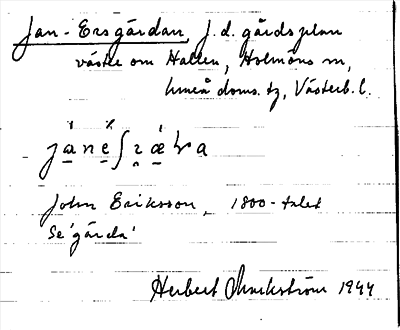 Jan-Ersgårdan, f.d. gårdsplan
väster om Hallen, Holmöns sn,
Umeå doms. tg, Västerb. l.
John Eriksson, 1800-talet
Se 'gårda'
Herbert Markström 1944